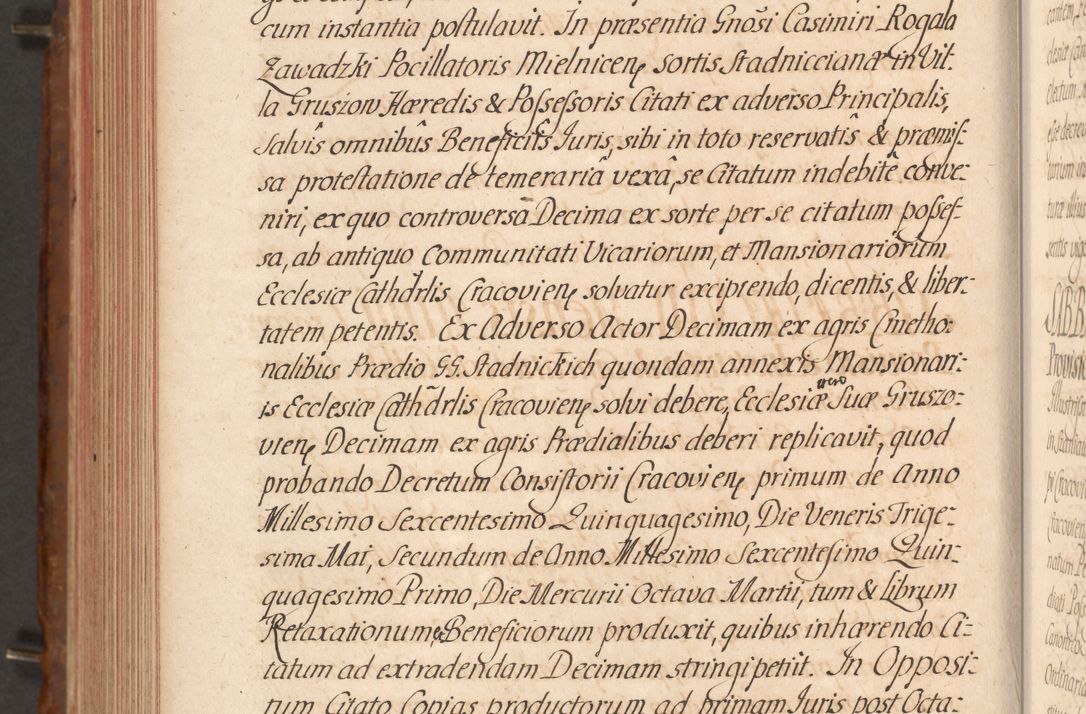 cum instantia postulavit. In præsentia Gnôsi Casimiri Rogala
Zawadzki Pocillatoris Mielnicen, sortis Stadnicciana in Vil-
la Gruszow Hæredis & Possessoris Citati ex adverso Principalis,
Salvîs omnibûs Beneficiîs Juris, sibi in toto reservatîs & præmis-
sa protestatione de temerariâ vexâ, se Citatum indebitê conve-
niri, ex quo controversa Decima ex sorte per se citatum posses-
sa, ab antiquo Communitati Vicariorum, et Mansionariorum
Ecclesiæ Cathdrlis Cracovien, solvatur excipiendo, dicentis, & liber-
tatem petentis. Ex Adverso Actor Decimam ex agris Cmetho-
nalibus Prædio GG. Stadnickich quondam annexis Mansionari-
is Ecclesiæ Cathdrlis Cracovien, solvi debere, Ecclesiæ vero Suæ Gruszo-
vien, Decimam ex agris Prædialibus deberi replicavit, quod
probando Decretum Consistorii Cracovien, primum de Anno
Millesimo Sexcentesimo Quinquagesimo, Die Veneris Trige-
sima Mai, Secundum de Anno Millesimo Sexcentesimo Quin-
quagesimo Primo, Die Mercurii Octava Martii, tum & Librum
Retaxationum Beneficiorum produxit, quibus inhærendo Ci-
tatum ad extradendam Decimam stringi petiit. In Opposi-
tum Citato Copias productorum ad primam Juris post Octa-